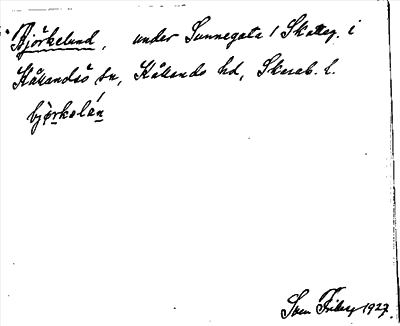 Björkelund, under Sunnegata 1 Skatteg. i
Kållandsö sn, Kållands hd, Skarab. l.
bjö̀rkəlán
Sven Friberg 1927.